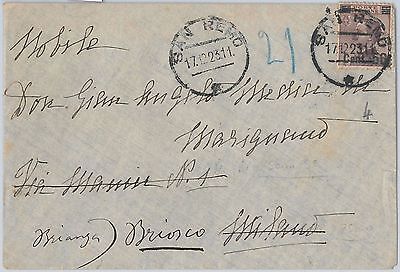 SAN REMO
17.12.23.11
SAN REMO
17.12.23.11
Cent. 50
21
Nobile
Don Gian Angelo
4
Marignano
Via Manin N. 1
(Brianza) Briosco Milano